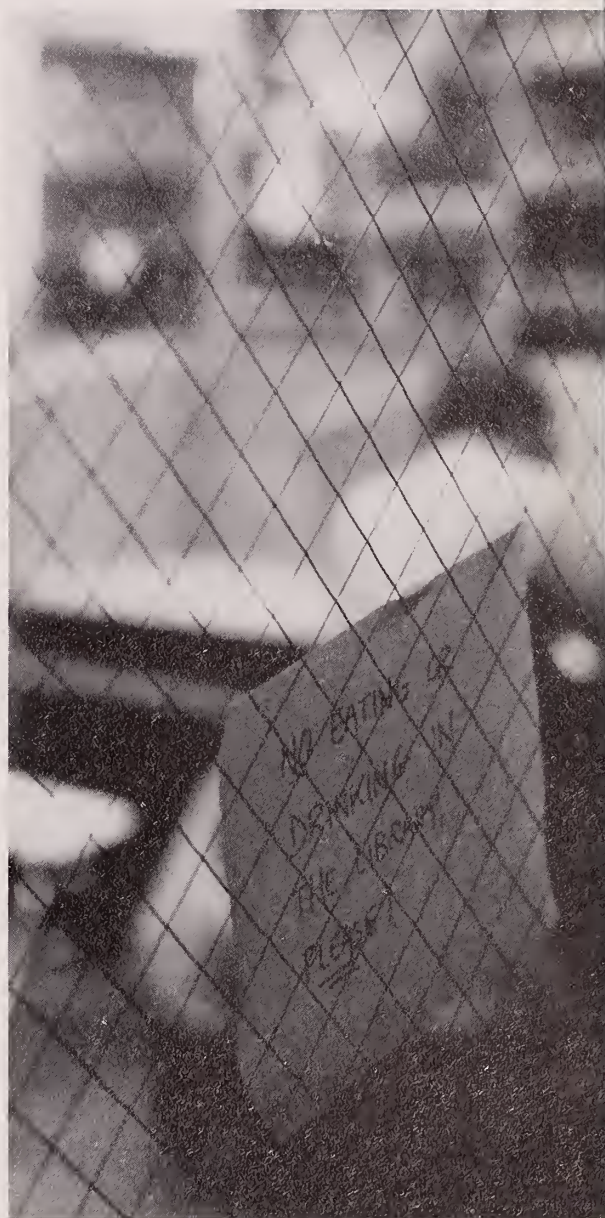 NO EATING OR
DRINKING IN
THE LIBRARY
PLEASE